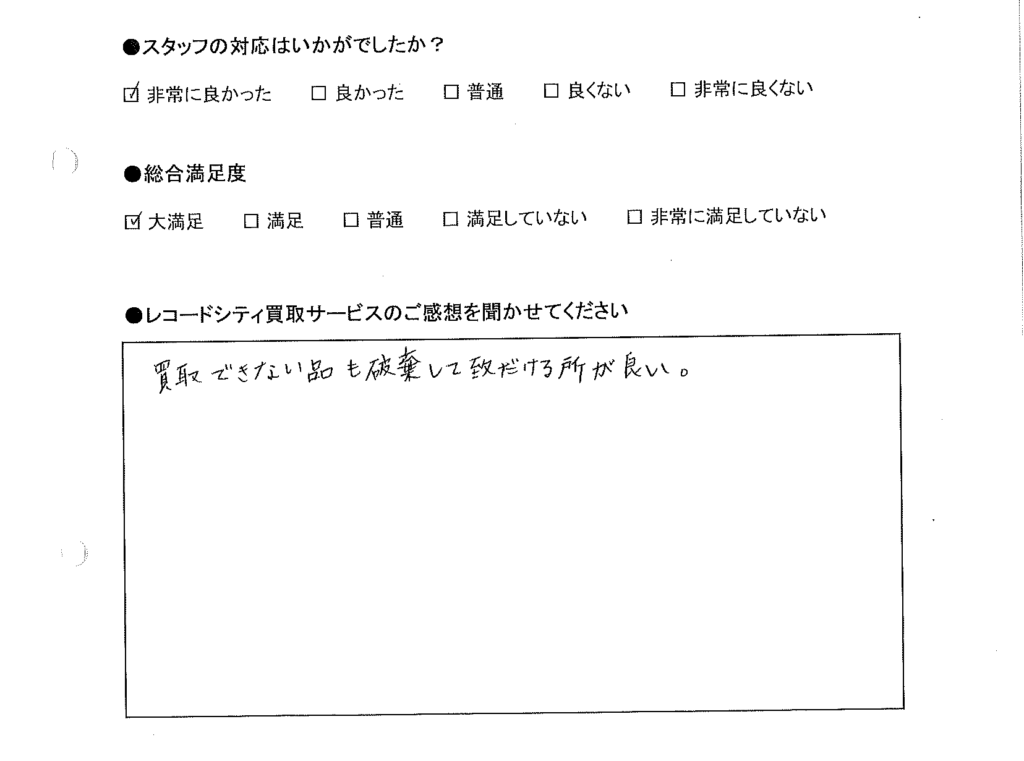 ●スタッフの対応はいかがでしたか？
☑ 非常に良かった　□ 良かった　□ 普通　□ 良くない　□ 非常に良くない
●総合満足度
☑ 大満足　□ 満足　□ 普通　□ 満足していない　□ 非常に満足していない
●レコードシティ買取サービスのご感想を聞かせてください
買取できない品も破棄して致だける所が良い。